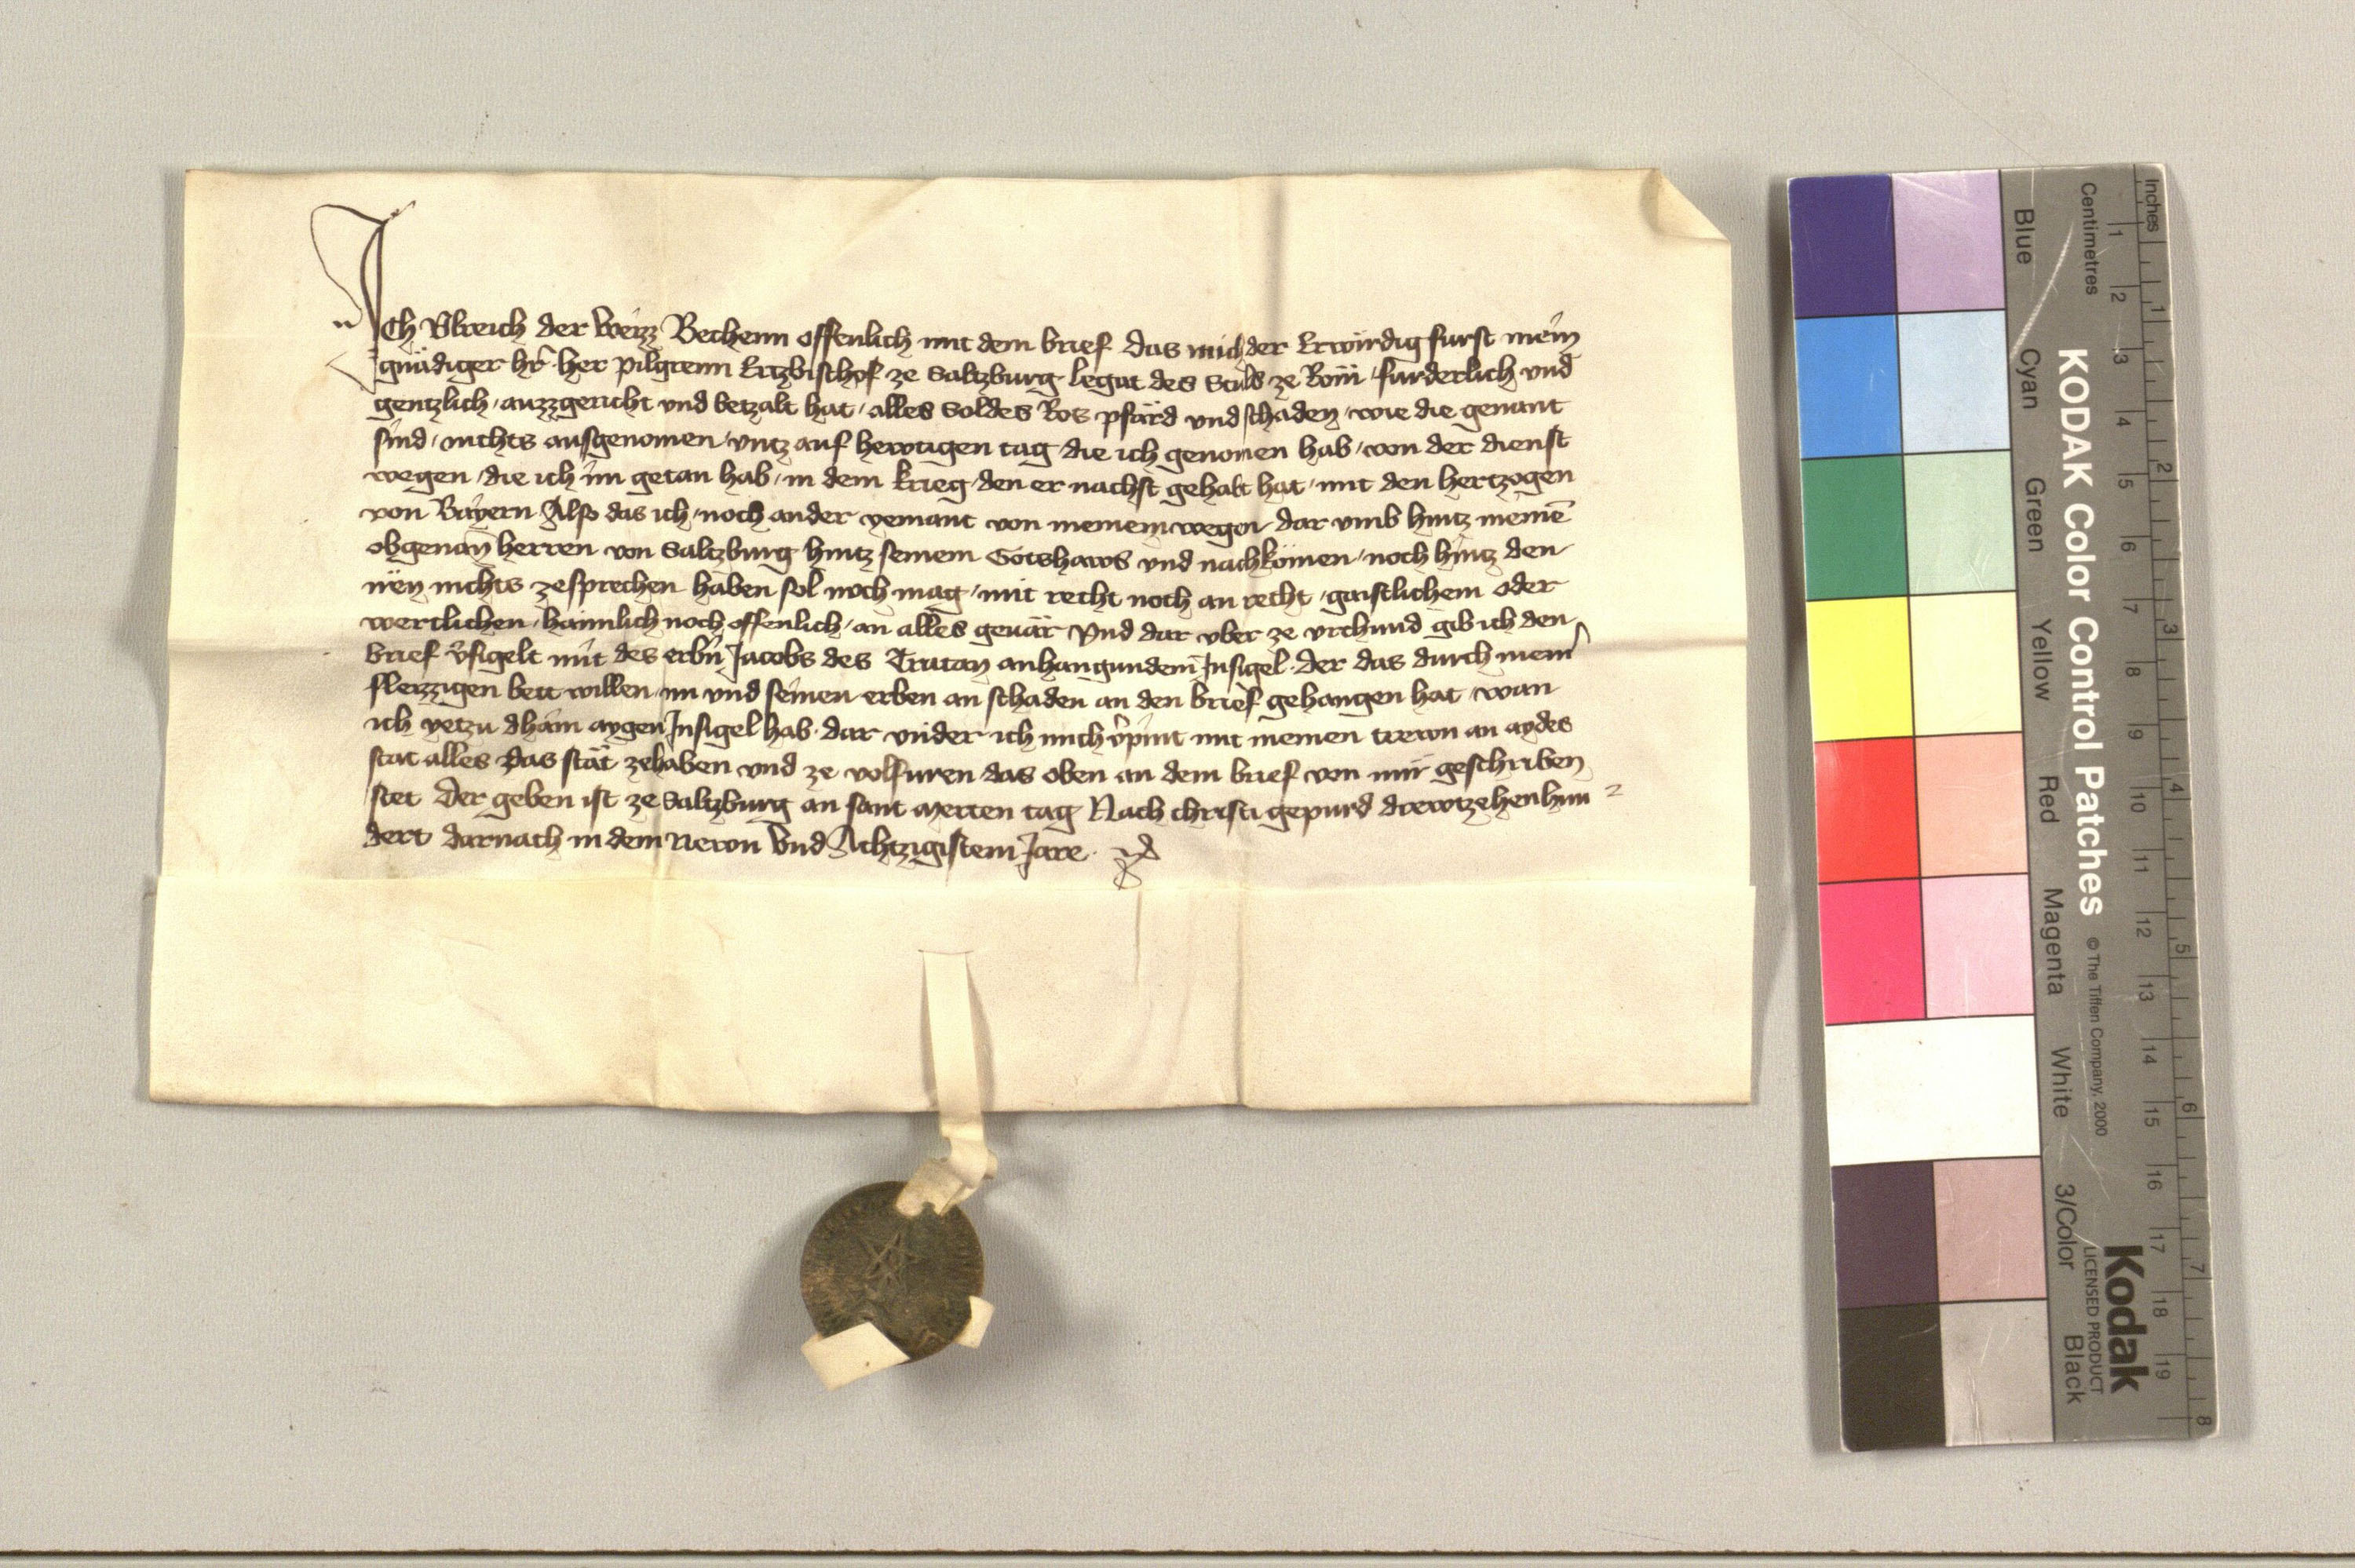 Ich Ulreich der Weizz Bechenn offenlich mit dem brief das mich der Erwirdig furst mein
gnädiger hr̄ her Pilgreim Ertzbischof ze Saltzburg Legat des Stuls ze Rom furderlich und
gentzlich auzzgericht und betzalt hat alles Soldes Ros pfärd und schaden wie die genant
sind nichts ausgenomen untz auf hewtigen tag die ich genomen hab von der dienst
wegen die ich im getan hab in dem krieg den er nachst gehabt hat mit den hertzogen
von Bayern Also das ich noch ander yemant von meinem wegen dar umb hintz meinē
obgenan̄ herren von Saltzburg hintz seinem Gotshaws und nachkömen noch hintz den
iren nichts zesprechen haben sol noch mag mit recht noch an recht gaistlichem oder
wertlichen haimlich noch offenlich an alles gevär Und dar uber ze urchund gib ich den
brief v̄sigelt mit des erbn̄ Jacobs des anhangundem Insigel der das durch mein
fleizzigen bett willen im und seinen erben an schaden an den brief gehangen hat wan
ich yetzu dhain aygen Insigel hab dar under ich mich v̄pint mit meinen trewn an aydes
stat alles das stät zehaben und ze volfuren das oben an dem brief von mir geschriben
stet Der geben ist ze Saltzburg an sant Merten tag Nach christi gepurd drewtzehenhun
dert darnach in dem Newn Und Achtzigistem Jare
KODAK Color Control Patches © The Tiffen Company, 2000
Kodak
LICENSED PRODUCT
Inches 1 2 3 4 5 6 7 8
Centimetres 1 2 3 4 5 6 7 8 9 10 11 12 13 14 15 16 17 18 19
Blue Cyan Green Yellow Red Magenta White 3/Color Black